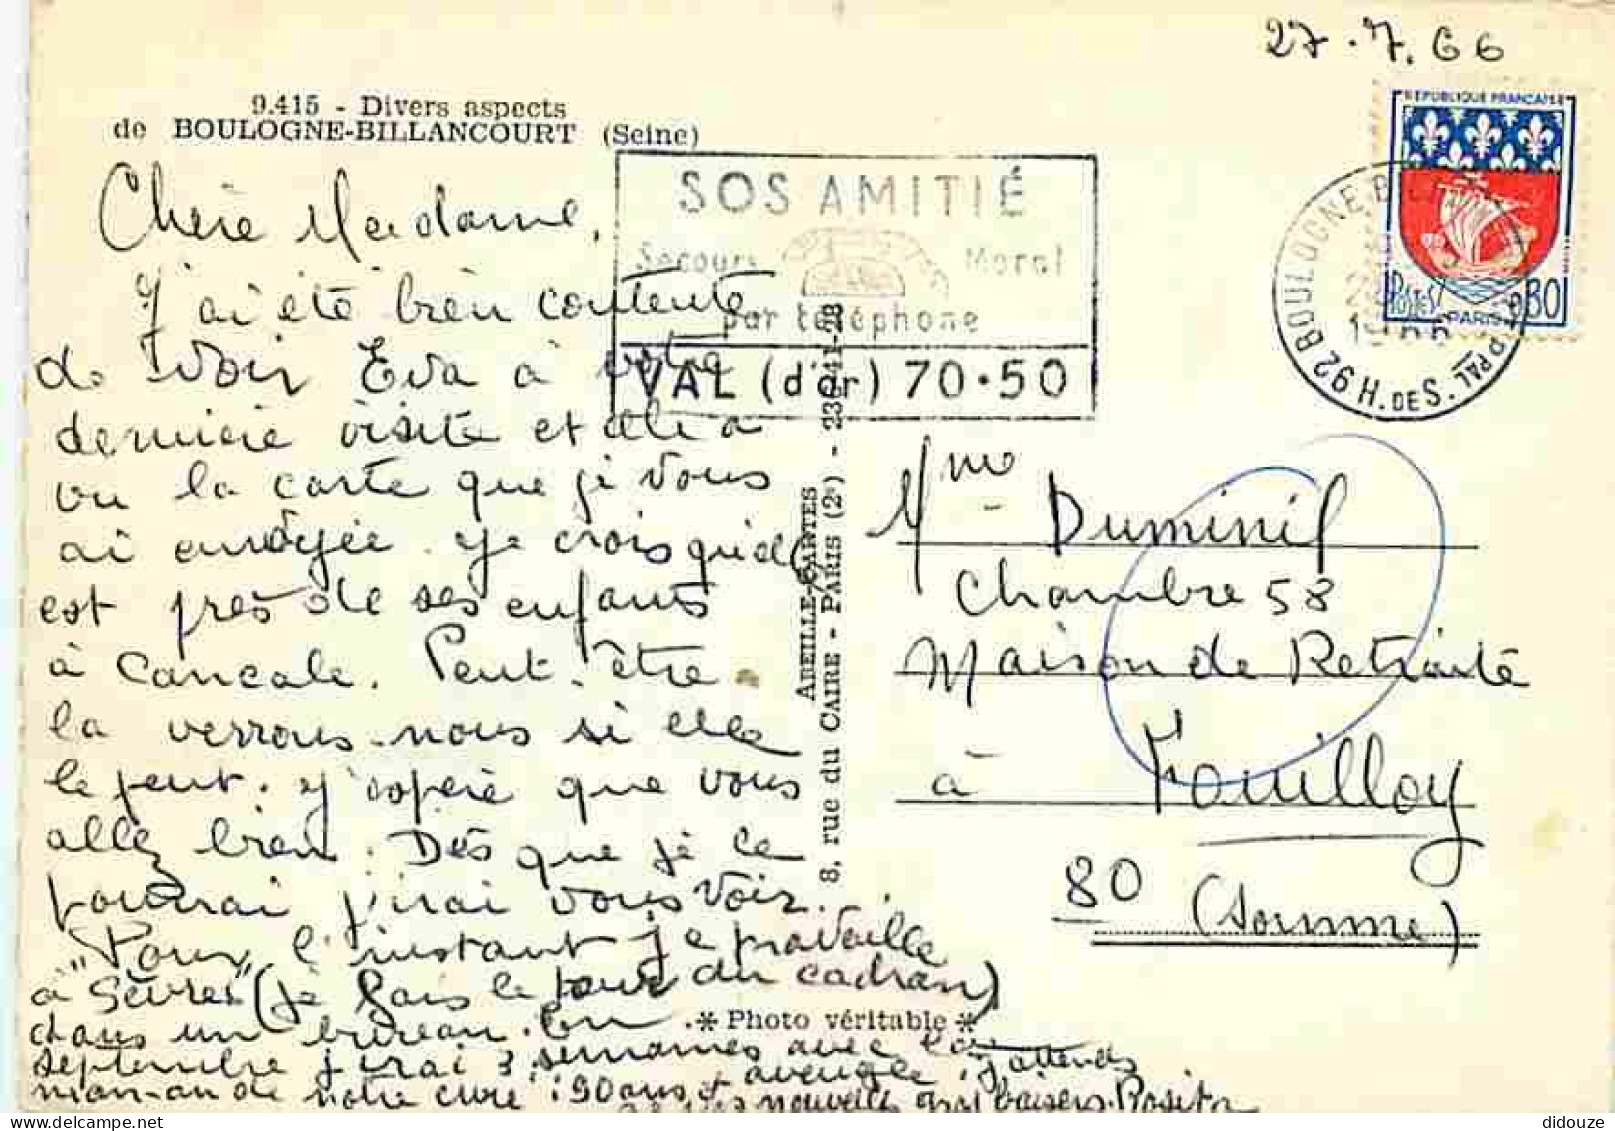 27.7.66
9.415 - Divers aspects
de BOULOGNE-BILLANCOURT (Seine)
SOS AMITIÉ
Secours Moral
par téléphone
VAL (d'or) 70.50
REPUBLIQUE FRANCAISE
POSTES
PARIS
0,30
BOULOGNE-B PPAL
92 H. DES S.
Chère Madame,
J'ai été bien contente
de voir Eva à votre
dernière visite et elle a
vu la carte que je vous
ai envoyée. Je crois qu'elle
est près de ses enfants
à Cancale. Peut-être
la verrons-nous si elle
le peut. J'espère que vous
allez bien. Dès que je le
pourrai j'irai vous voir.
Pour l'instant je travaille
à "Sèvres" (je fais le tour du cadran)
dans un bureau. En
septembre j'irai 3 semaines avec
maman de notre curé : 90 ans et aveugle, j'attends
nouvelles gros baisers. Rosita
ABEILLE-CARTES
8, rue du CAIRE - PARIS (2e) - 236-41-28
* Photo véritable *
Mme Duminil
Chambre 58
Maison de Retraite
à Fouilloy
80 (Somme)
didouze